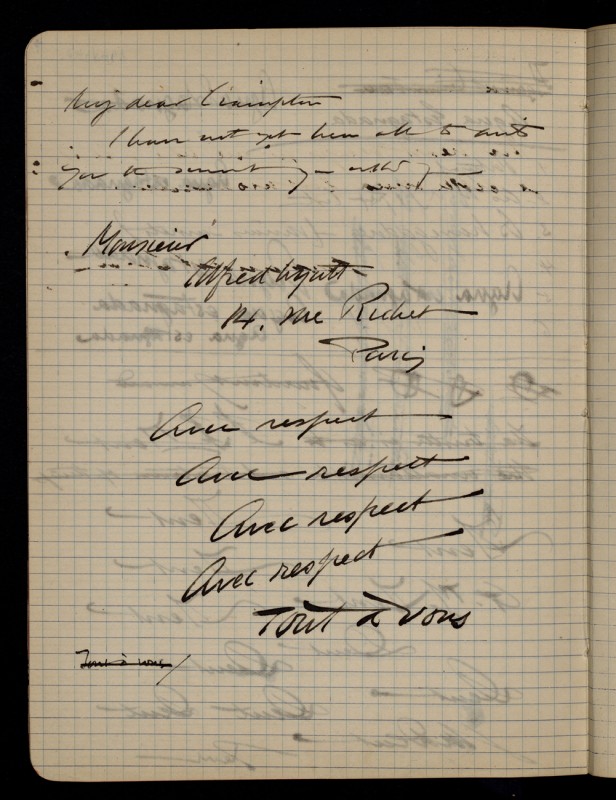 My dear Crampton
I have not yet been able to write
you the
Monsieur
Alfred Wyatt
14. rue Richet
Paris
Avec respect
Avec respect
Avec respect
Avec respect
Tout à vous
Tout à vous